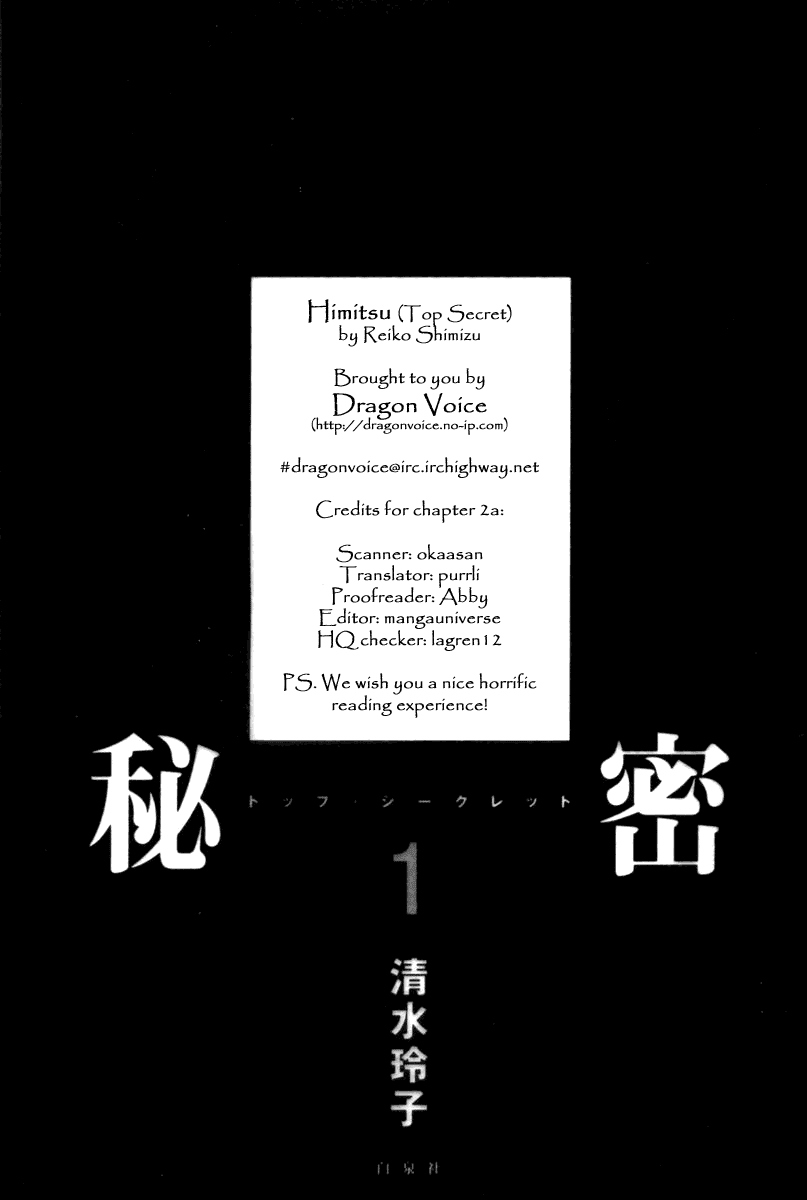 Himitsu (Top Secret)
by Reiko Shimizu
Brought to you by
Dragon Voice
(http://dragonvoice.no-ip.com)
#dragonvoice@irc.irchighway.net
Credits for chapter 2a:
Scanner: okaasan
Translator: purrli
Proofreader: Abby
Editor: mangauniverse
HQ checker: lagren12
PS. We wish you a nice horrific
reading experience!
秘密
トップ・シークレット
1
清水玲子
白泉社